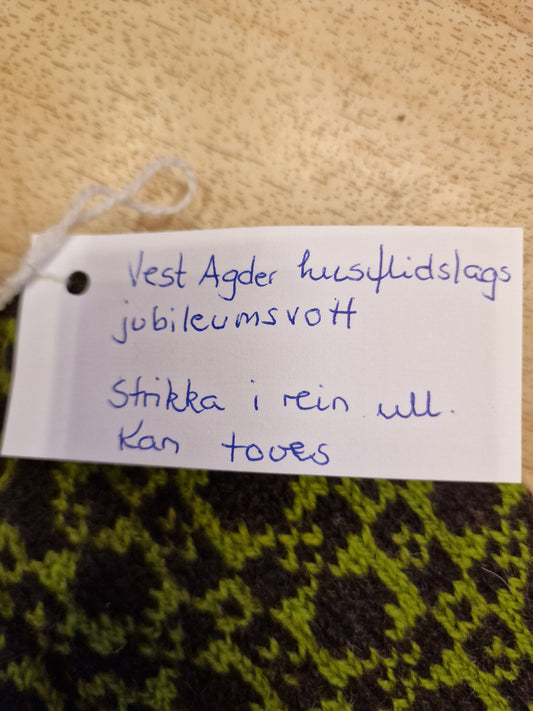 Vest Agder husflidslags
jubileumsvott
Strikka i rein ull.
Kan toves